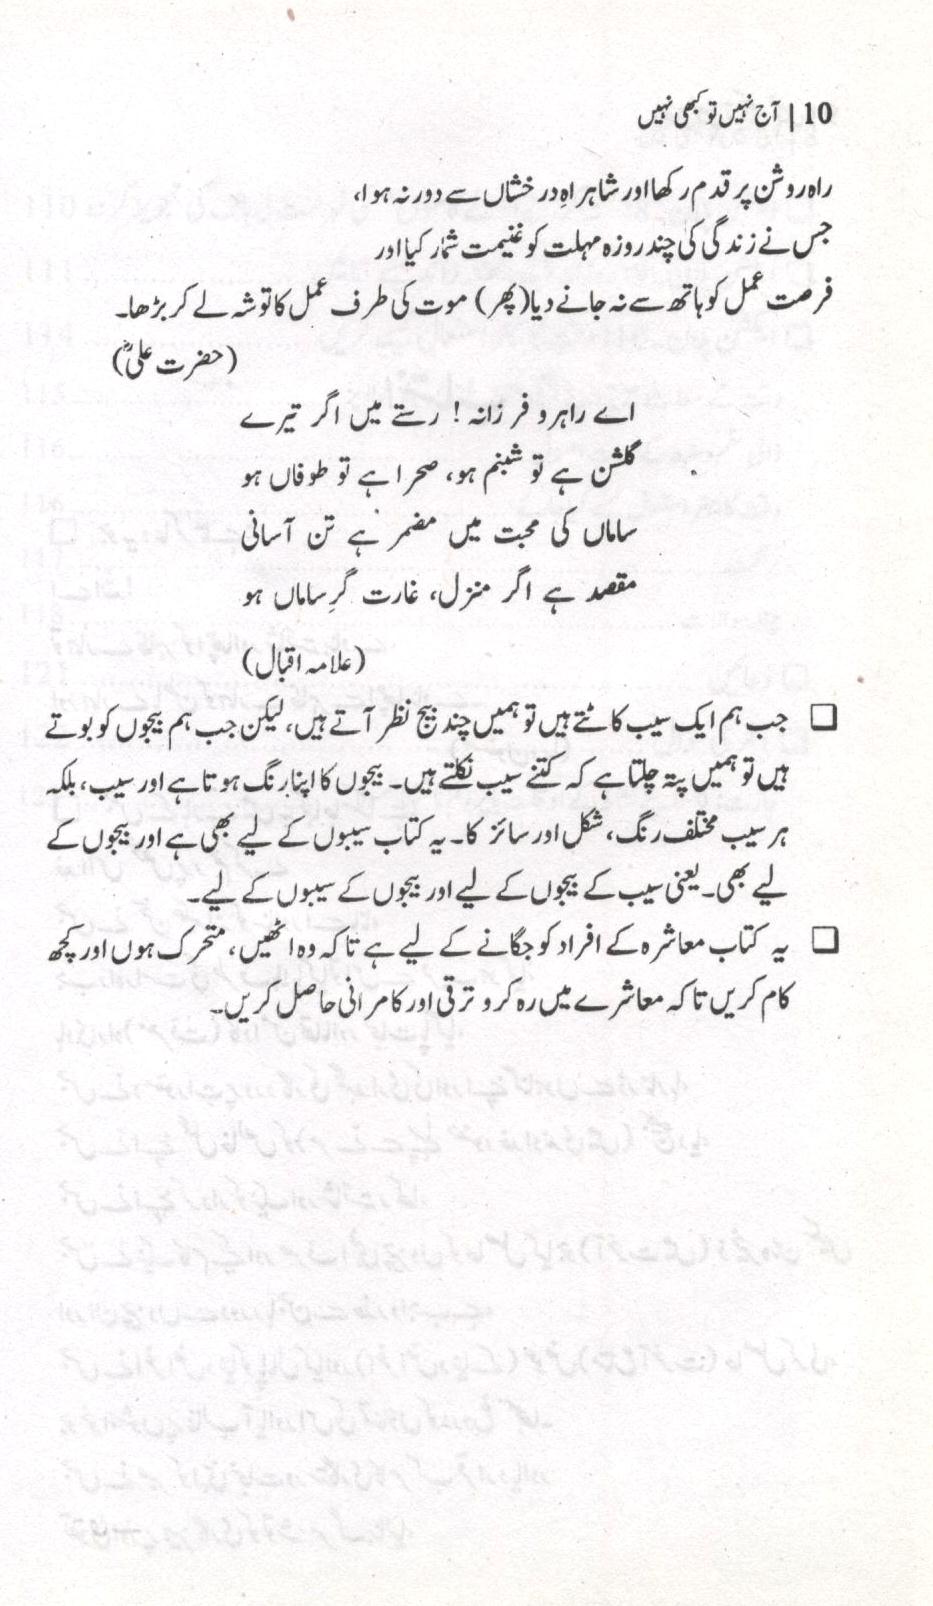 10 | آج نہیں تو کبھی نہیں
راہ روشن پر قدم رکھا اور شاہراہِ درخشاں سے دور نہ ہوا،
جس نے زندگی کی چند روزہ مہلت کو غنیمت شمار کیا اور
فرصت عمل کو ہاتھ سے نہ جانے دیا (پھر) موت کی طرف عمل کا توشہ لے کر بڑھا۔
(حضرت علیؓ)
اے راہرو فرزانہ! رستے میں اگر تیرے
گلشن ہے تو شبنم ہو، صحرا ہے تو طوفاں ہو
ساماں کی محبت میں مضمر ہے تن آسانی
مقصد ہے اگر منزل، غارت گرِ ساماں ہو
(علامہ اقبال)
❑ جب ہم ایک سیب کاٹتے ہیں تو ہمیں چند بیج نظر آتے ہیں، لیکن جب ہم بیجوں کو بوتے
ہیں تو ہمیں پتہ چلتا ہے کہ کتنے سیب نکلتے ہیں۔ بیجوں کا اپنا رنگ ہوتا ہے اور سیب، بلکہ
ہر سیب مختلف رنگ، شکل اور سائز کا۔ یہ کتاب سیبوں کے لیے بھی ہے اور بیجوں کے
لیے بھی۔ یعنی سیب کے بیجوں کے لیے اور بیجوں کے سیبوں کے لیے۔
❑ یہ کتاب معاشرہ کے افراد کو جگانے کے لیے ہے تاکہ وہ اٹھیں، متحرک ہوں اور کچھ
کام کریں تاکہ معاشرے میں رہ کر وہ ترقی اور کامرانی حاصل کریں۔